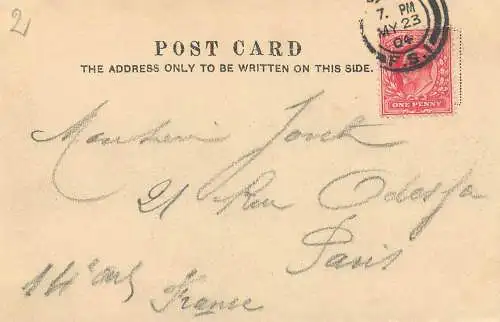 2
7. PM
MY 23
04
F.S.
POST CARD
THE ADDRESS ONLY TO BE WRITTEN ON THIS SIDE.
ONE PENNY
21 Rue Odessa
Paris
14e
France